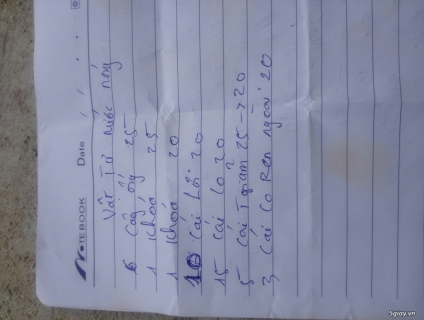 NOTEBOOK Date
Vật Tư nước nóng
6 cây ống 25
1 Khoá 25
1 Khoá 20
10 Cái Lơi 20
15 cái co 20
5 cái T giảm 25 -> 20
3 cái co Ren ngoài 20
5giay.vn